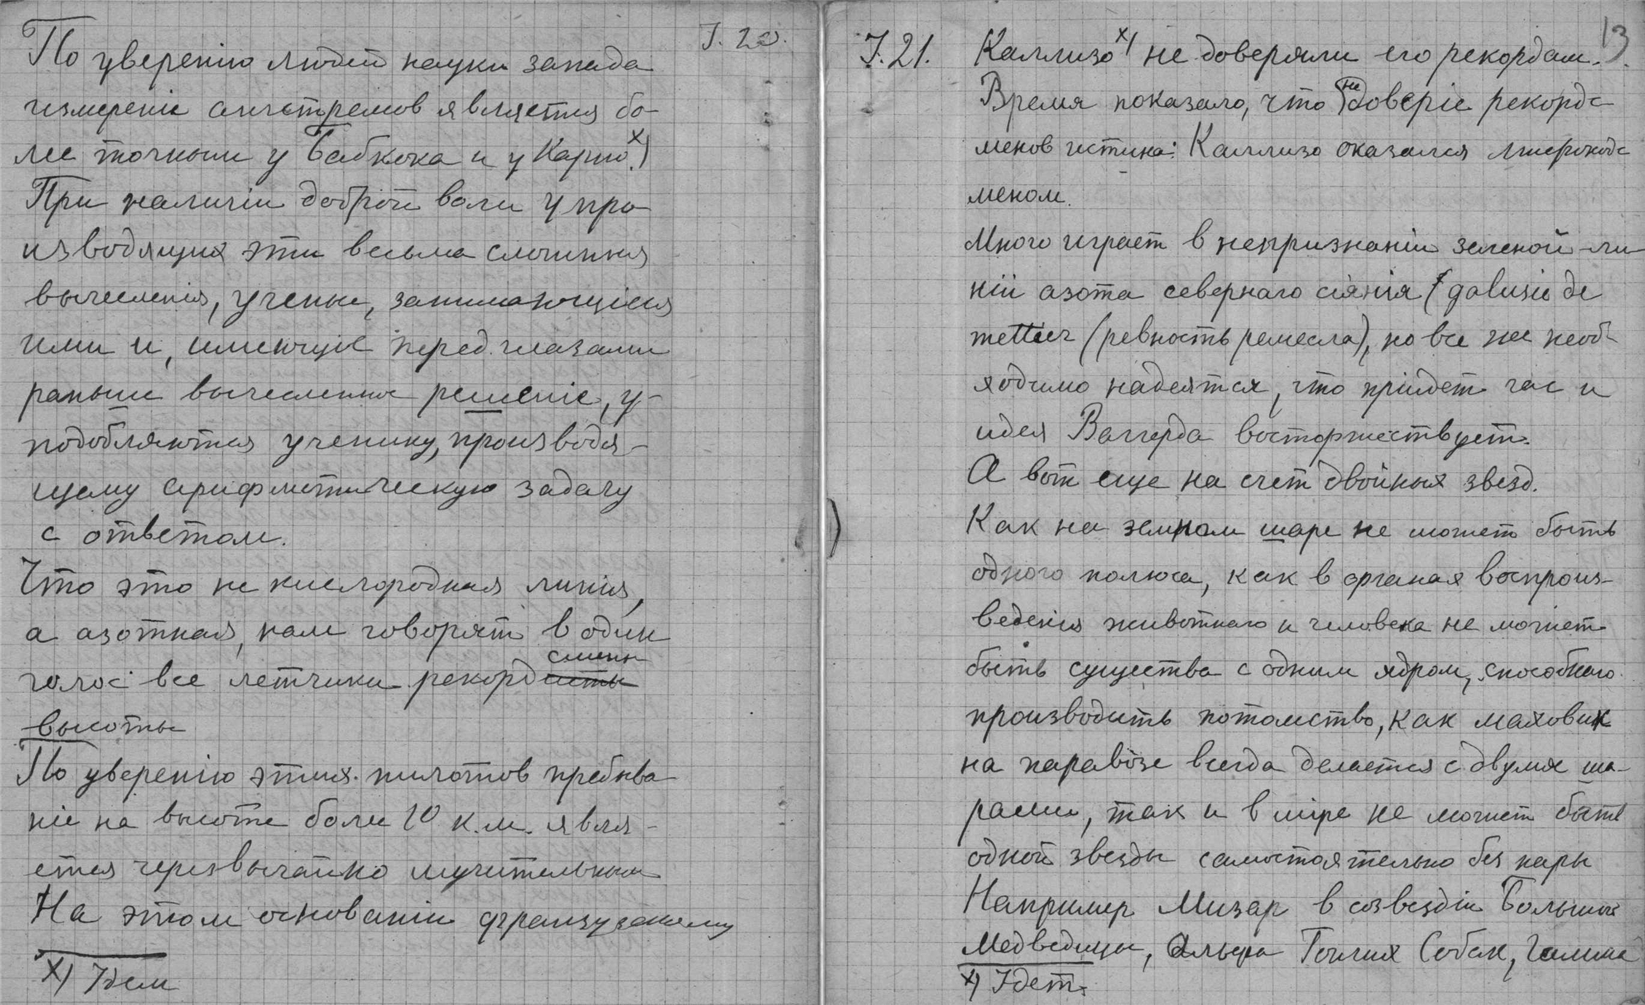 J. 20.
По уверенію людей науки запада
измереніе ангстремов является бо-
лее точным у Бабкока и у Карио. х)
При наличіи доброй воли у про
изводящих эти весьма сложныя
вычисленія, ученые, занимающіеся
ими и, имеющіе перед глазами
раньше вычисленное решеніе, у-
подобляются ученику, производя-
щему арифметическую задачу
с ответом.
Что это не кислородная линія,
а азотная, нам говорят в один
голос все летчики рекордсмены
высоты
По уверенію этих пилотов пребыва
ніе на высоте более 10 к.м. явля-
ется черезвычайно мучительным
На этом основаніи французскому
х) Idem
13
J. 21.
Каллизо х) не доверяли его рекордам.
Время показало, что недоверіе рекордс-
менов истина: Каллизо оказался
меном.
Много играет в непризнаніи зеленой ли
ніи азота севернаго сіянія (galusie de
mettier (ревность ремесла), но все же необ-
ходимо надеятся, что прійдет час и
идея Ваггерда восторжествует.
А вот еще на счет двойных звезд.
Как на земном шаре не может быть
одного полюса, как в органах воспроиз-
веденія животнаго и человека не может
быть существа с одним ядром, способнаго
производить потомство, как маховик
на паравозе всегда делается с двумя ша-
рами, так и в міре не может быть
одной звезды самостоятельно без пары
Например Мизар в созвездіи Большой
Медведицы, Альфа Гончих Собак,
х) Idem.